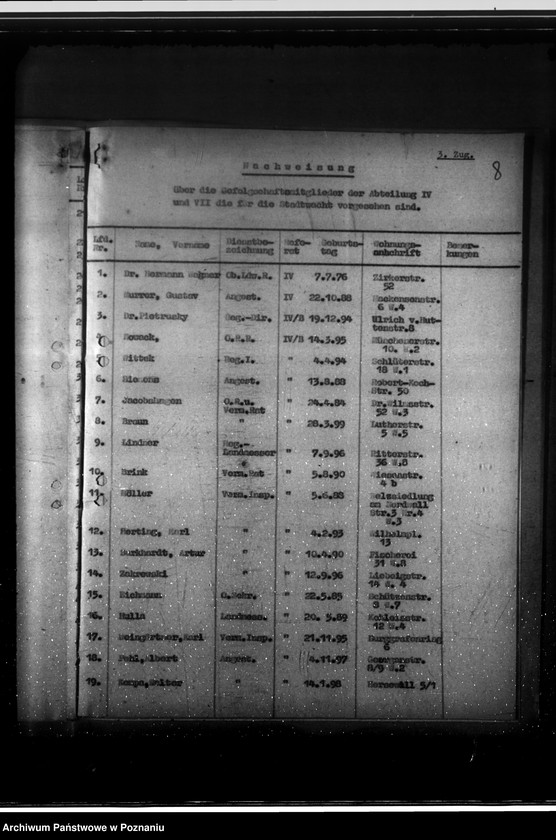 3. Zug.
8
Nachweisung
über die Gefolgschaftsmitglieder der Abteilung IV
und VII die für die Stadtwacht vorgesehen sind.
Lfd. Nr. Name, Vorname Dienstbe-zeichnung Refe-rat Geburts-tag Wohnungs-anschrift Bemer-kungen
1. Dr. Hermann Ob.Ldw.R. IV 7.7.76 Zirkerstr.
52
2. Gustav Angest. IV 22.10.88 Mackensenstr.
6 W.4
3. Dr.Pietrusky Reg.-Dir. IV/B 19.12.94 Ulrich v.Hut-
tenstr.8
4. O.R.R. IV/B 14.3.95 Münchenerstr.
10. W.2
5. Wittek Reg.I. " 4.4.94 Schlüterstr.
18 W.1
6. Angest. " 13.8.88 Robert-Koch-
Str. 50
7. Jacobshagen O.R.u. " 24.4.84 Dr.Wilmsstr.
Verm.Rat 52 W.3
8. Braun " " 28.3.99 Lutherstr.
5 W.5
9. Lindner Reg.-
Landmesser " 7.9.96 Ritterstr.
36 W.8
10. Brink Verm.Rat " 5.8.90 Wiesenstr.
4 b
11. Möller Verm.Insp. " 5.6.88
am Nordwall
Str.3 Nr.4
W.3
12. Herting, Karl " " 4.2.93 Wilhelmpl.
13
13. Burkhardt, Artur " " 10.4.90 Fischerei
31 W.8
14. Zakrewski " " 12.9.96 Liebigstr.
14 W. 4
15. Eichmann O.Sekr. " 22.5.85 Schützenstr.
3 W.7
16. Landmess. " 20. 5.89
12 W.4
17. Weingärtner, Karl Verm.Insp. " 21.11.95 Burggrafenring
6
18. Pohl, Albert Angest. " 4.11.97
8/9 W.2
19. Kempe, Walter " " 14.1.98 5/1
Archiwum Państwowe w Poznaniu